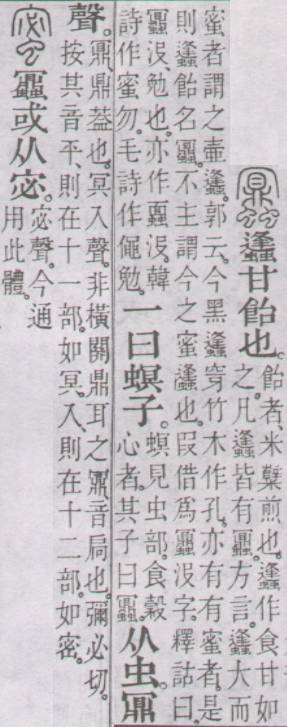 𧖅
䗬甘飴也。
飴者、米糱煎也。䗬作食甘如
之。凡䗬皆有𧖅。方言。䗬大而
蜜者謂之壷䗬。郭云。今黑䗬穿竹木作孔、亦有有蜜者。是
則䗬飴名𧖅。不主謂今之蜜䗬也。叚借爲𧖅没字。釋詁曰。
𧖅没、勉也。亦作蠠没。韓
詩作蜜勿。毛詩作僶勉。
一曰螟子。
螟見虫部。食穀
心者。其子曰𧖅
从虫鼏
聲。
鼏、鼎葢也。冥入聲。非橫關鼎耳之鼏音扃也。彌必切。
按其音平、則在十一部。如冥。入、則在十二部。如密。
蜜
𧖅或从宓。
宓聲。今通
用此體。